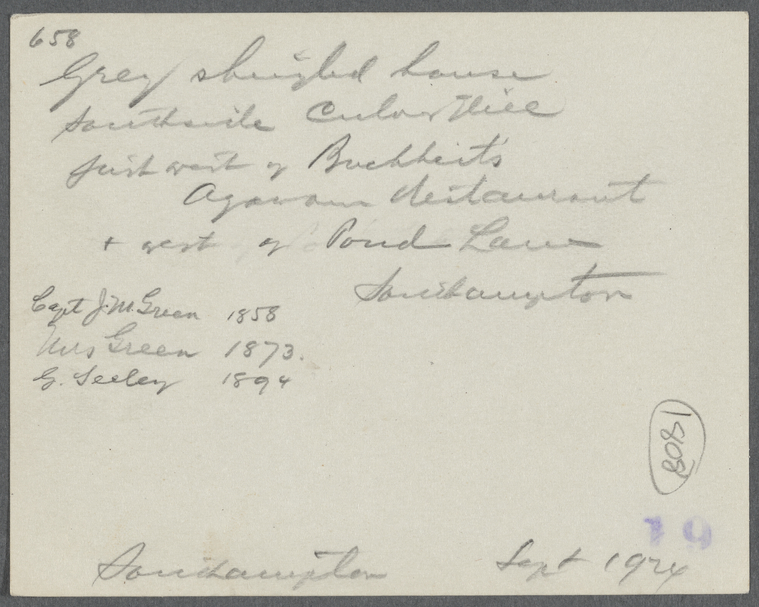 658
Grey shingled house
southside Culver Hill
just west of Buchheit's
Agawam Restaurant
+ west of Pond Lane
Southampton
Capt J.M. Green 1858
Mrs Green 1873.
G. Seeley 1894
1808
19
Southampton Sept 1924